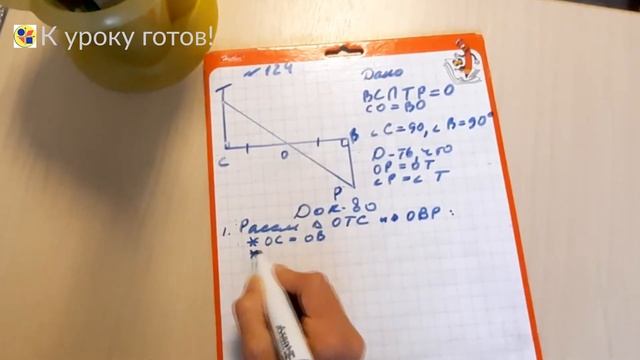 К уроку готов!
№ 124
Дано
BC∩TP=O
CO=BO
∠C=90, ∠B=90°
Д-ть, что
OP=OT
∠P=∠T
T
C
O
B
P
Док-во
1. Рассм △ OTC и △ OBP:
* OC=OB
*